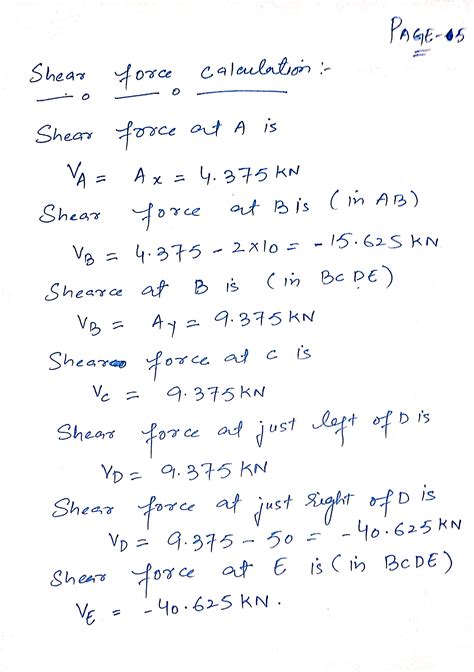 PAGE-05
Shear force calculation :-
Shear force at A is
V_A = Ax = 4.375 KN
Shear force at B is (in AB)
V_B = 4.375 - 2×10 = -15.625 KN
Shearce at B is (in BCDE)
V_B = Ay = 9.375 KN
Shear force at C is
V_C = 9.375 KN
Shear force at just left of D is
V_D = 9.375 KN
Shear force at just right of D is
V_D = 9.375 - 50 = -40.625 KN
Shear force at E is (in BCDE)
V_E = -40.625 KN.